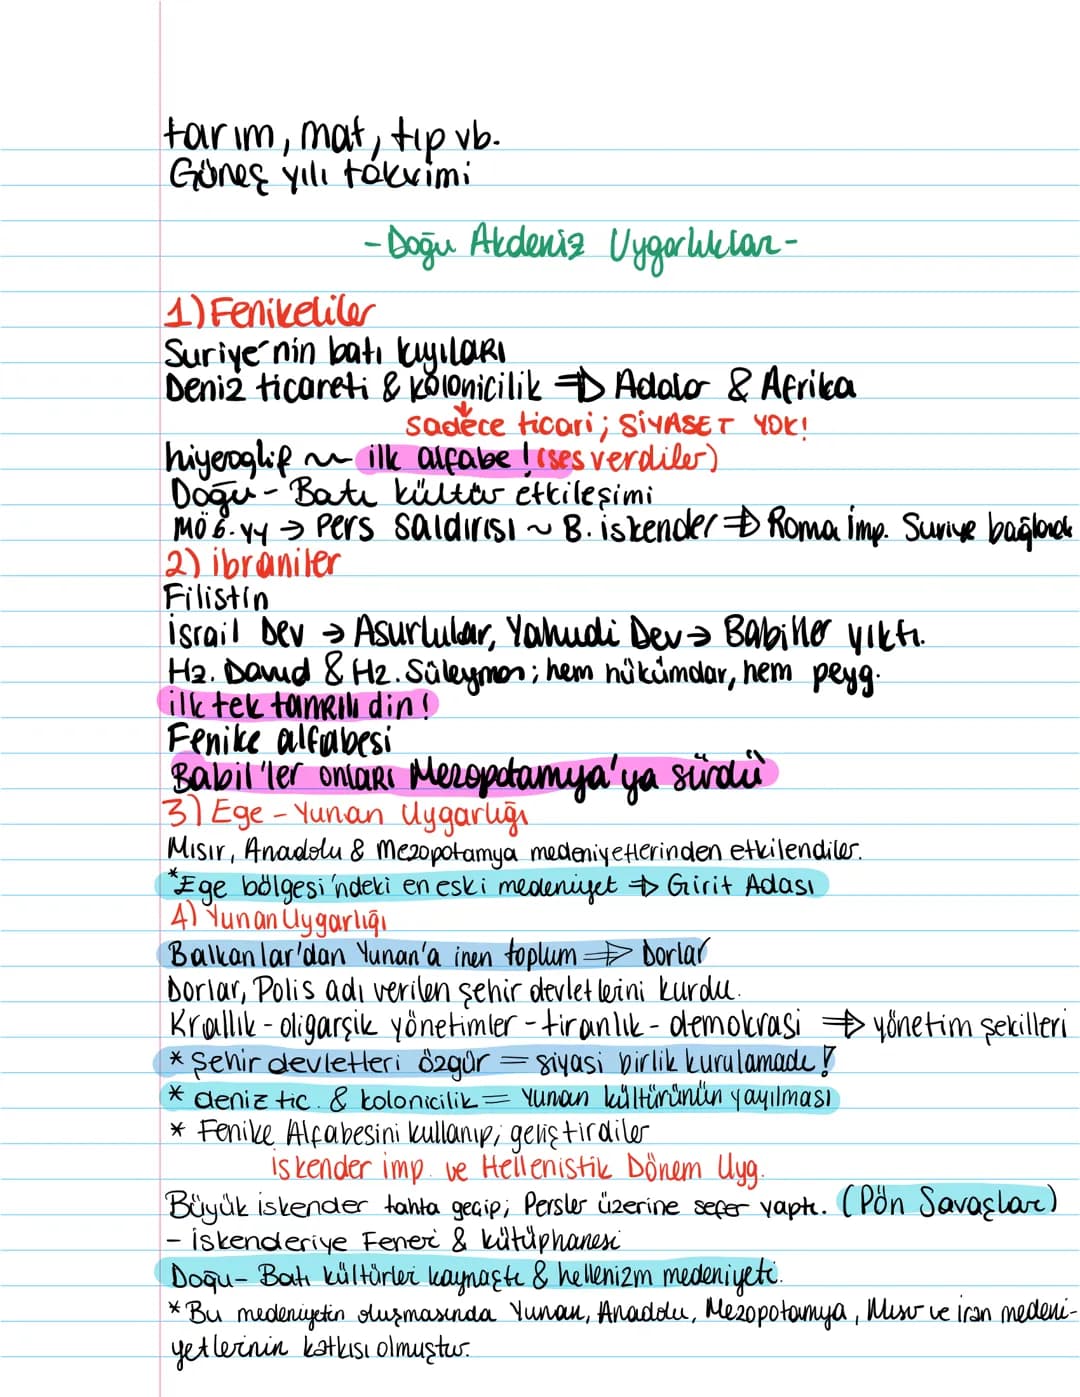 tarım, mat, tıp vb.
Güneş yılı takvimi
- Doğu Akdeniz Uygarlıkları -
1) Fenikeliler
Suriye'nin batı kıyıları
Deniz ticareti & kolonicilik ⇒ Adalar & Afrika
↓
sadece ticari; SİYASET YOK!
hiyeroglif ~ ilk alfabe! (ses verdiler)
Doğu - Batı kültür etkileşimi
MÖ 6. yy → Pers saldırısı ~ B. iskender ⇒ Roma imp. Suriye bağlandı
2) ibraniler
Filistin
israil Dev → Asurlular, Yahudi Dev → Babiller yıktı.
Hz. Davud & Hz. Süleyman; hem hükümdar, hem peyg.
ilk tek tanrılı din!
Fenike alfabesi
Babil'ler onları Mezopotamya'ya sürdü
3) Ege - Yunan Uygarlığı
Mısır, Anadolu & Mezopotamya medeniyetlerinden etkilendiler.
*Ege bölgesi'ndeki en eski medeniyet ⇒ Girit Adası
4) Yunan Uygarlığı
Balkanlar'dan Yunan'a inen toplum ⇒ Dorlar
Dorlar, Polis adı verilen şehir devletlerini kurdu.
Krallık - oligarşik yönetimler - tiranlık - demokrasi ⇒ yönetim şekilleri
* Şehir devletleri özgür = siyasi birlik kurulamadı!
* deniz tic. & kolonicilik = Yunan kültürünün yayılması
* Fenike Alfabesini kullanıp, geliştirdiler
iskender imp. ve Hellenistik Dönem Uyg.
Büyük iskender tahta geçip; Persler üzerine sefer yaptı. (Pön Savaşları)
- iskenderiye Feneri & kütüphanesi
Doğu - Batı kültürleri kaynaştı & hellenizm medeniyeti.
*Bu medeniyetin oluşmasında Yunan, Anadolu, Mezopotamya, Mısır ve iran medeni-
yetlerinin katkısı olmuştur.